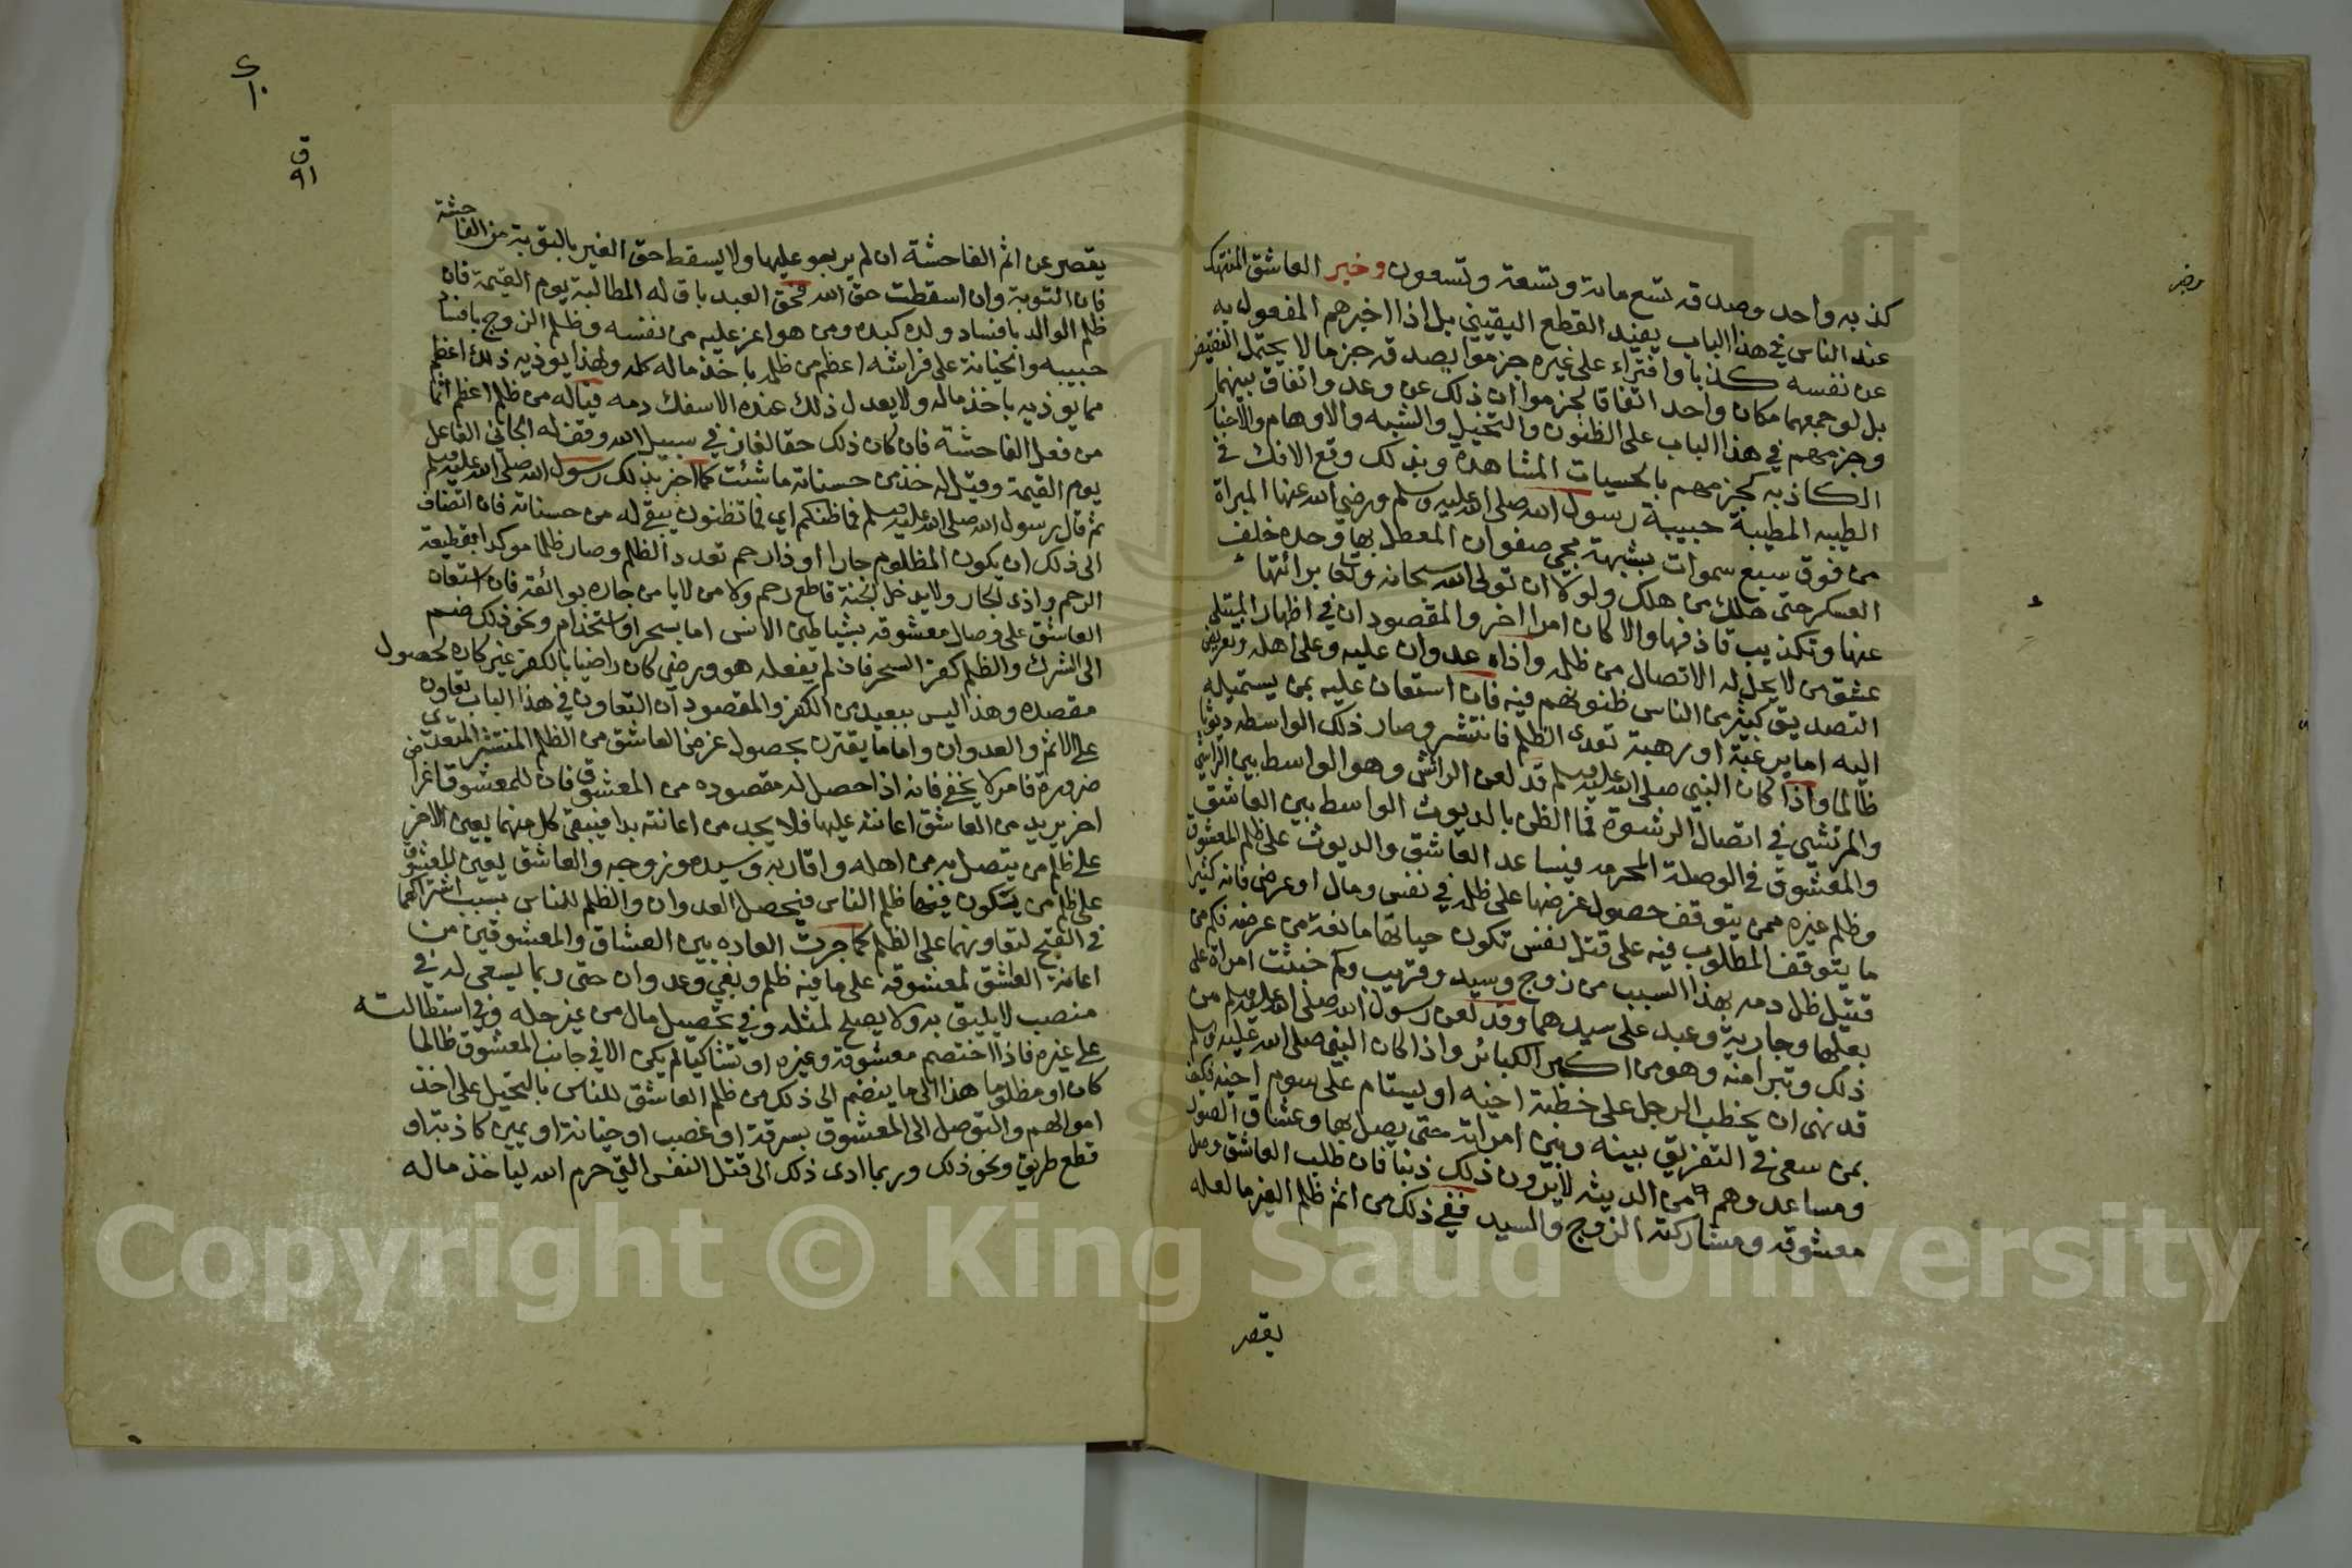 كذبه واحد وصدقه تسع مائة وتسعة وتسعون وخبر العاشق المنهتك
عند الناس في هذا الباب يفيد القطع اليقيني بل اذا اخبرهم المفعول به
عن نفسه كذبا وافتراء على غيره جزموا بصدقه جزما لا يحتمل النقيض
بل لو جمعهما مكان واحد اتفاقا لجزموا ان ذلك عن وعد واتفاق بينهما
وجزمهم في هذا الباب على الظنون والتخيل والشبه والاوهام والاخبار
الكاذبه كجزمهم بالحسيات المشاهدة وبذلك وقع الافك في
الطيبه المطيبة حبيبة رسول الله صلى الله عليه وسلم ورضي الله عنها المبراة
من فوق سبع سموات بشبهة مجي صفوان المعطل بها وحده خلف
العسكر حتى هلك من هلك ولولا ان تولى الله سبحانه وتعا برائتها
عنها وتكذيب قاذفها والا كان امرا اخر والمقصود ان في اظهار المبتلى
عشق من لا يحل له الاتصال من ظلمه واذاه عدوان عليه وعلى اهله وتعريض
التصديق كثير من الناس ظنونهم فيه فان استعان عليه بمن يستميله
اليه اما برغبة او رهبة تعدى الظلم فانتشر وصار ذلك الواسطه ديوثا
ظالما واذا كان النبي صلى الله عليه وسلم قد لعن الرائش وهو الواسط بين الراشي
والمرتشي في اتصال الرشوة فما الظن بالديوث الواسط بين العاشق
والمعشوق في الوصلة المحرمه فيساعد العاشق والديوث على ظلم المعشوق
وظلم غيره ممن يتوقف حصول غرضها على ظلمه في نفس ومال او عرض فانه كثيرا
ما يتوقف المطلوب فيه على قتل نفس تكون حياتها مانعة من غرضه فكم من
قتيل ظل دمه بهذا السبب من زوج وسيد وقريب وكم خبثت امراة على
بعلها وجارية وعبد على سيدهما وقد لعن رسول الله صلى الله عليه وسلم من
ذلك وتبرا منه وهو من اكبر الكبائر واذا كان النبي صلى الله عليه وسلم
قد نهى ان يخطب الرجل على خطبة اخيه او يستام على سوم اخيه فكيف
بمن سعى في التفريق بينه وبين امراته حتى يصل بها وعشاق الصور
ومساعدوهم من الديثه لا يرون ذلك ذنبا فان طلب العاشق وصل
معشوقه ومشاركة الزوج والسيد ففي ذلك من اثم ظلم الغير ما لعله
يقصر
يقصر عن اثم الفاحشة ان لم يربو عليها ولا يسقط حق الغير بالتوبة من الفاحشة
فان التوبة وان اسقطت حق الله فحق العبد باق له المطالبة يوم القيمة فان
ظلم الوالد بافساد ولده كبده ومن هو اعز عليه من نفسه وظلم الزوج بافساد
حبيبه والخيانة على فراشه اعظم من ظلمه باخذ ماله كله ولهذا يوذيه ذلك اعظم
مما يوذيه باخذ ماله ولا يعدل ذلك عنده الا سفك دمه فياله من ظلم اعظم اثما
من فعل الفاحشة فان كان ذلك حقا لغاز في سبيل الله وقف له الجاني الفاعل
يوم القيمة وقيل له خذ من حسناته ما شئت كما اخبر بذلك رسول الله صلى الله عليه وسلم
ثم قال رسول الله صلى الله عليه وسلم فما ظنكم اي فما تظنون يبقى له من حسناته فان انضاف
الى ذلك ان يكون المظلوم جارا او ذا رحم تعدد الظلم وصار ظلما موكدا بقطيعة
الرحم واذى الجار ولا يدخل الجنة قاطع رحم ولا من لا يامن جاره بوائقه فان استعان
العاشق على وصال معشوقه بشياطين الانس اما بسحر او استخدام ونحو ذلك ضم
الى الشرك والظلم كفر السحر فان لم يفعله هو ورضي كان راضيا بالكفر غير كاره لحصول
مقصده وهذا ليس ببعيد من الكفر والمقصود ان التعاون في هذا الباب تعاون
على الاثم والعدوان واما ما يقترن بحصول غرض العاشق من الظلم المنتشر المتعدي
ضرره فامر لا يخفى فانه اذا حصل له مقصوده من المعشوق فان للمعشوق اغراضا
اخر يريد من العاشق اعانته عليها فلا يجد من اعانته بدا فيبقى كل منهما يعين الاخر
على ظلم من يتصل به من اهله واقاربه وسيده وزوجه والعاشق يعين المعشوق
على ظلم من يكون فيها ظلم الناس فيحصل العدوان والظلم للناس بسبب اشتراكهما
في القبح لتعاونهما على الظلم كما جرت العاده بين العشاق والمعشوقين من
اعانة العاشق لمعشوقه على ما فيه ظلم وبغي وعدوان حتى ربما يسعى له في
منصب لا يليق به ولا يصلح لمثله وفي تحصيل مال من غير حله وفي استطالته
على غيره فاذا اختصم معشوقه وغيره او تشاكيا لم يكن الا في جانب المعشوق ظالما
كان او مظلوما هذا الى ما ينضم الى ذلك من ظلم العاشق للناس بالتحيل على اخذ
اموالهم والتوصل الى المعشوق بسرقة او غصب او خيانة او يمين كاذبة او
قطع طريق ونحو ذلك وربما ادى ذلك الى قتل النفس التي حرم الله لياخذ ماله
Copyright © King Saud University